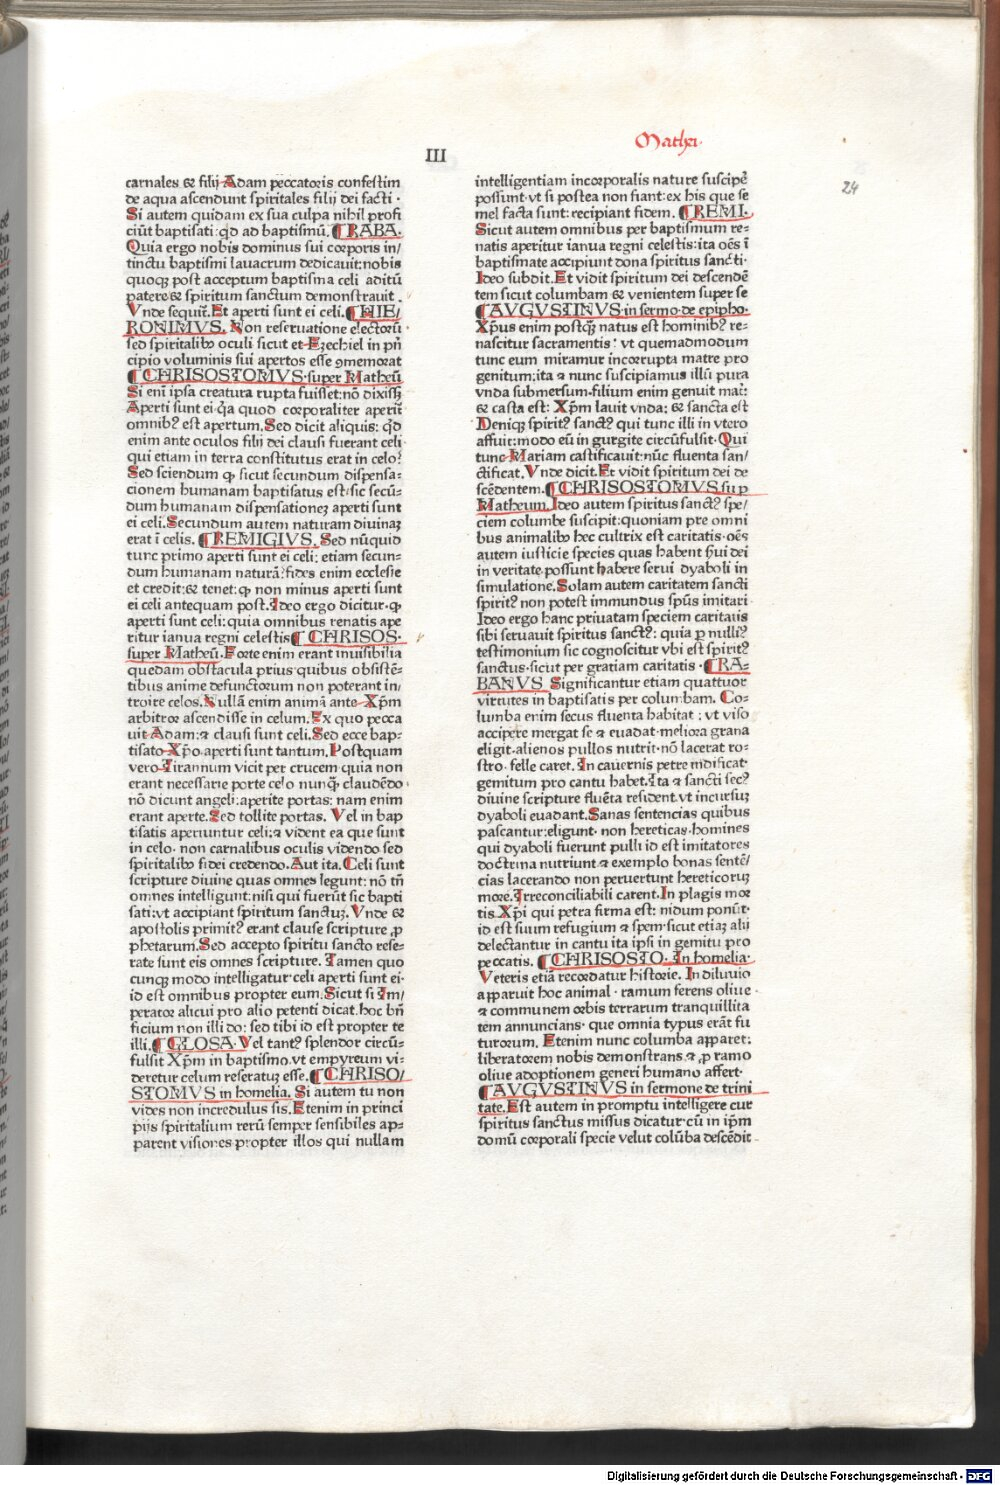 Mathei.
III
24
carnales & filij Adam peccatoris confestim
de aqua ascendunt spiritales filij dei facti ·
Si autem quidam ex sua culpa nihil profi
ciūt baptisati: qd ad baptismū. ¶RABA.
Quia ergo nobis dominus sui corporis in/
tinctu baptismi lauacrum dedicauit: nobis
quoqꝫ post acceptum baptisma celi aditū
patere & spiritum sanctum demonstrauit.
Vnde sequit̄. Et aperti sunt ei celi. ¶HIE/
RONIMVS. Non reseruatione electorū ·
sed spiritalibꝰ oculi sicut et Ezechiel in pri̅
cipio voluminis sui apertos esse ꝯmemorat
¶CHRISOSTOMVS· super Matheū
Si eni̅ ipsa creatura rupta fuisset: nō dixissꝫ
Aperti sunt ei· q̄a quod corporaliter aperit̄
omnibꝰ est apertum. Sed dicit aliquis: qd
enim ante oculos filij dei clausi fuerant celi·
qui etiam in terra constitutus erat in celo?
Sed sciendum ꝙ sicut secundum dispensa=
cionem humanam baptisatus est: sic secū=
dum humanam dispensationeꝫ aperti sunt
ei celi. Secundum autem naturam diuinaꝫ
erat ī celis. ¶REMIGIVS. Sed nūquid
tunc primo aperti sunt ei celi; etiam secun=
dum humanam naturā? fides enim ecclesie
et credit: & tenet: ꝙ non minus aperti sunt
ei celi antequam post. Ideo ergo dicitur· ꝙ
aperti sunt celi: quia omnibus renatis ape
ritur ianua regni celestis ¶CHRISOS·
super Matheū. Forte enim erant inuisibilia
quedam obstacula prius quibus obsistē=
tibus anime defunctorum non poterant in/
troire celos. Nullā enim animā ante Xp̄m
arbitror ascendisse in celum. Ex quo pecca
uit Adam: ꝛ clausi sunt celi. Sed ecce bap=
tisato Xp̄o aperti sunt tantum. Postquam
vero Tirannum vicit per crucem quia non
erant necessarie porte celo nunq̄ claudēdo·
nō dicunt angeli: aperite portas: nam enim
erant aperte. Sed tollite portas. Vel in bap
tisatis aperiuntur celi: ꝛ vident ea que sunt
in celo· non carnalibus oculis videndo sed
spiritalibꝰ fidei credendo. Aut ita. Celi sunt
scripture diuine quas omnes legunt: nō tn̄
omnes intelligunt: nisi qui fuerūt sic bapti
sati: vt accipiant spiritum sanctuꝫ. Vnde &
apostolis primitꝰ erant clause scripture ꝓ
phetarum. Sed accepto spiritu sancto rese=
rate sunt eis omnes scripture. Tamen quo
cunqꝫ modo intelligatur· celi aperti sunt ei·
id est omnibus propter eum. Sicut si Im/
perator alicui pro alio petenti dicat. hoc bn̄
ficium non illi do: sed tibi id est propter te
illi. ¶GLOSA. Vel tantꝰ splendor circū=
fulsit Xp̄m in baptismo. vt empyreum vi=
deretur celum reseratuꝫ esse. ¶CHRISO/
STOMVS in homelia. Si autem tu non
vides non incredulus sis. Etenim in princi
pijs spiritalium rerū semper sensibiles ap=
parent visiones propter illos qui nullam
intelligentiam incorporalis nature suscipē
possunt· vt si postea non fiant: ex his que se
mel facta sunt: recipiant fidem. ¶REMI.
Sicut autem omnibus per baptismum re=
natis aperitur ianua regni celestis: ita oēs ī
baptismate accipiunt dona spiritus sancti·
Ideo subdit. Et vidit spiritum dei descendē
tem sicut columbam & venientem super se
¶AVGVSTINVS· in sermo· de epipho·
Xp̄us enim postq̄ natus est hominibꝰ re=
nascitur sacramentis: vt quemadmodum
tunc eum miramur incorrupta matre pro
genitum: ita ꝛ nunc suscipiamus illū pura
vnda submersum· filium enim genuit mat̄:
& casta est: Xp̄m lauit vnda: & sancta est
Deniqꝫ spiritꝰ sanctꝰ qui tunc illi in vtero
affuit: modo eū in gurgite circūfulsit· Qui
tunc Mariam castificauit: nūc fluenta san/
ctificat. Vnde dicit. Et vidit spiritum dei de
scēdentem. ¶CHRISOSTOMVS sup
Matheum. Ideo autem spiritus sanctꝰ spe/
ciem columbe suscipit: quoniam pre omni
bus animalibꝰ hec cultrix est caritatis· oēs
autem iusticie species quas habent serui dei
in veritate possunt habere serui dyaboli in
simulatione. Solam autem caritatem sancti
spiritꝰ non potest immundus sp̄us imitari·
Ideo ergo hanc priuatam speciem caritatis
sibi seruauit spiritus sanctꝰ: quia p̱ nulliꝰ
testimonium sic cognoscitur vbi est spiritꝰ
sanctus· sicut per gratiam caritatis· ¶RA=
BANVS Significantur etiam quattuor
virtutes in baptisatis per columbam. Co=
lumba enim secus fluenta habitat; vt viso
accipitre mergat se & euadat· meliora grana
eligit· alienos pullos nutrit· nō lacerat ro=
stro· felle caret. In cauernis petre nidificat·
gemitum pro cantu habet. Ita ꝛ sancti secꝰ
diuine scripture fluēta resident. vt incursuꝫ
dyaboli euadant. Sanas sentencias quibus
pascantur: eligunt· non hereticas· homines
qui dyaboli fuerunt pulli id est imitatores
doctrina nutriunt ꝛ exemplo bonas sentē/
cias lacerando non peruertunt hereticoruꝫ
more. Irreconciliabili carent. In plagis mor
tis Xp̄i qui petra firma est: nidum ponūt·
id est suum refugium & spem· sicut etiaꝫ alii
delectantur in cantu ita ipsi in gemitu pro
peccatis. ¶CHRISOSTO. In homelia·
Veteris etiā recordatur historie. In diluuio
apparuit hoc animal· ramum ferens oliue·
ꝛ communem orbis terrarum tranquillita
tem annuncians· que omnia typus erāt fu
turorum. Etenim nunc columba apparet:
liberatorem nobis demonstrans. ꝛ ꝓ ramo
oliue adoptionem generi humano affert·
¶AVGVSTINVS in sermone de trini
tate. Est autem in promptu intelligere cur
spiritus sanctus missus dicatur· cū in ip̄m
domū corporali specie velut colūba descēdit·
Digitalisierung gefördert durch die Deutsche Forschungsgemeinschaft · DFG